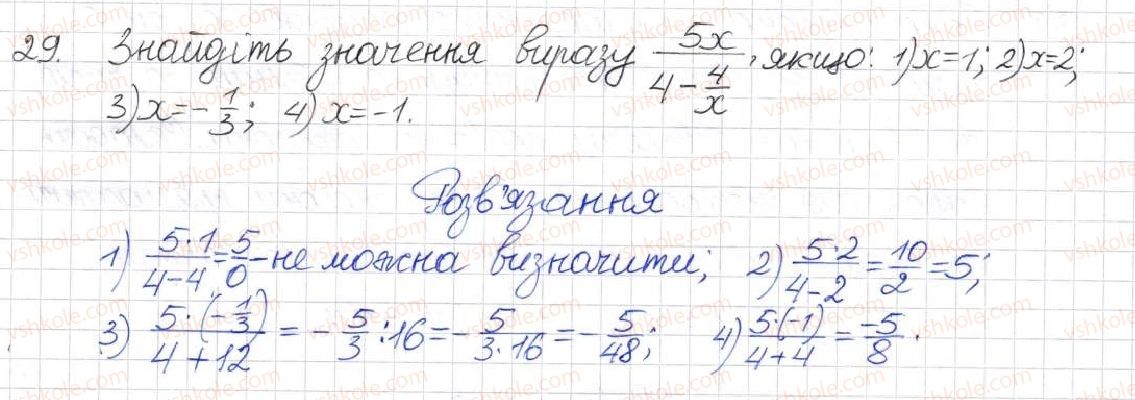 29. Знайдіть значення виразу 5x/(4 - 4/x), якщо: 1) x=1; 2) x=2;
3) x=-1/3; 4) x=-1.
Розв'язання
1) 5·1/(4-4) = 5/0 - не можна визначити; 2) 5·2/(4-2) = 10/2 = 5;
3) 5·(-1/3)/(4+12) = -5/3 : 16 = -5/(3·16) = -5/48; 4) 5·(-1)/(4+4) = -5/8.
vshkole.com